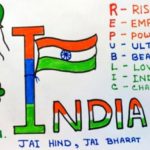 R - RIS
E - EMP
P - POW
U - ULT
B - BEA
L - LO
I - IND
C - CHA
INDIA
JAI HIND, JAI BHARAT